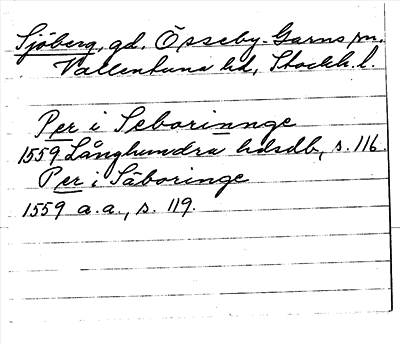 Sjöberg, gd, Össeby-Garns sn.
Vallentuna hd, Stockh. l.
Per i Seborinnge
1559 Långhundra hdsdb, s. 116.
Per i Säboringe
1559 a.a., s. 119.